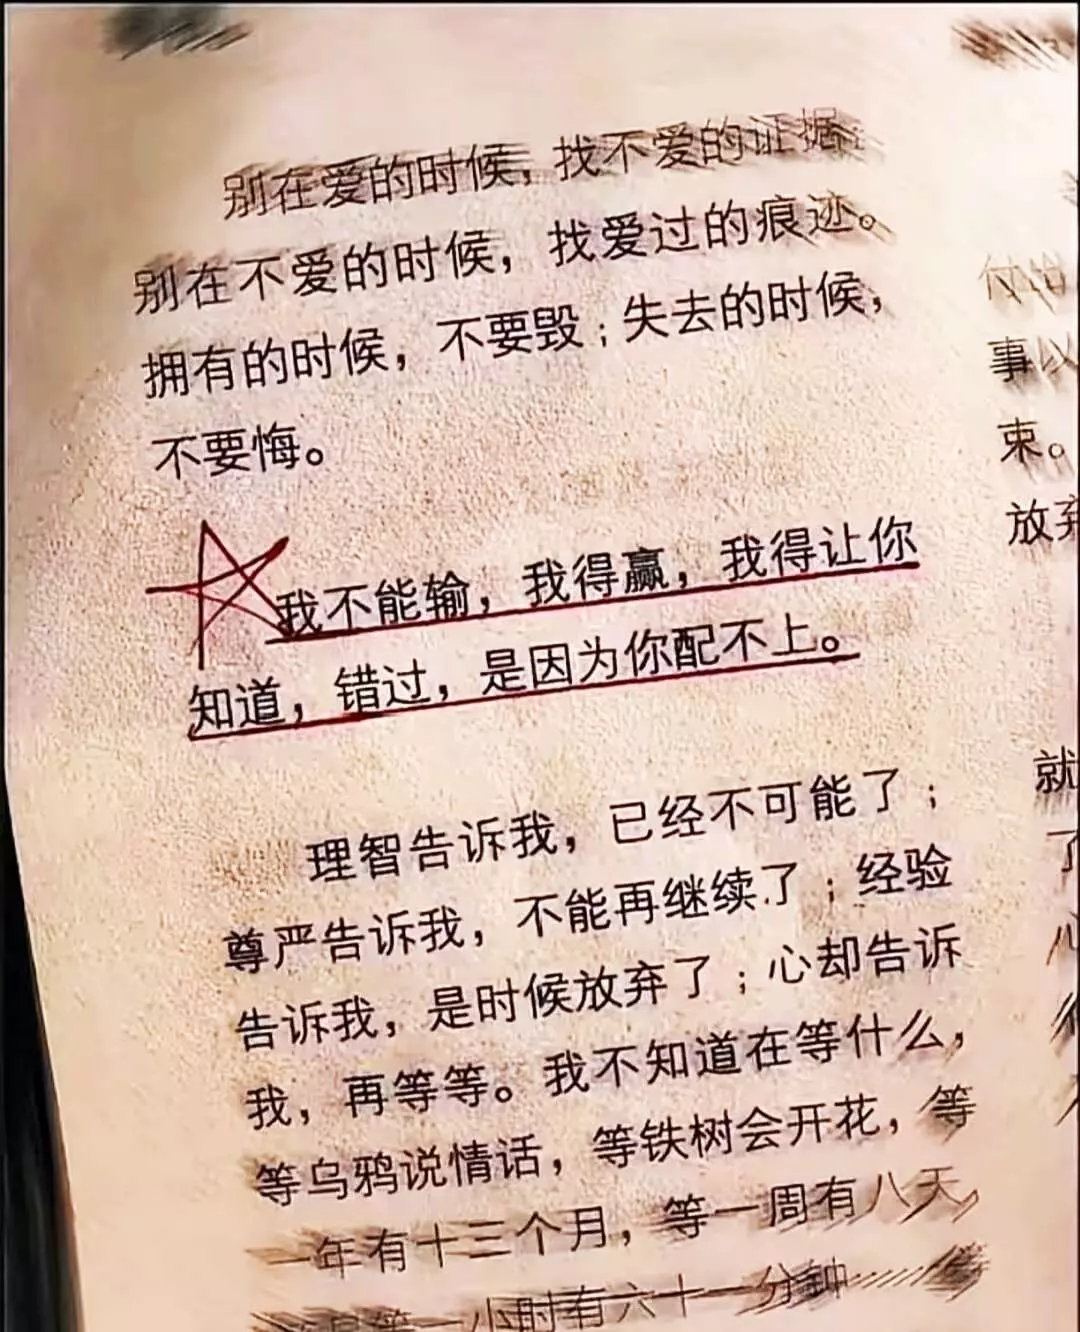 别在爱的时候，找不爱的证据。
别在不爱的时候，找爱过的痕迹。
拥有的时候，不要毁；失去的时候，
不要悔。
我不能输，我得赢，我得让你
知道，错过，是因为你配不上。
理智告诉我，已经不可能了；
尊严告诉我，不能再继续了；经验
告诉我，是时候放弃了；心却告诉
我，再等等。我不知道在等什么，
等乌鸦说情话，等铁树会开花，等
一年有十三个月，等一周有八天，
等一小时有六十一分钟
事以
束。
放弃
就
了